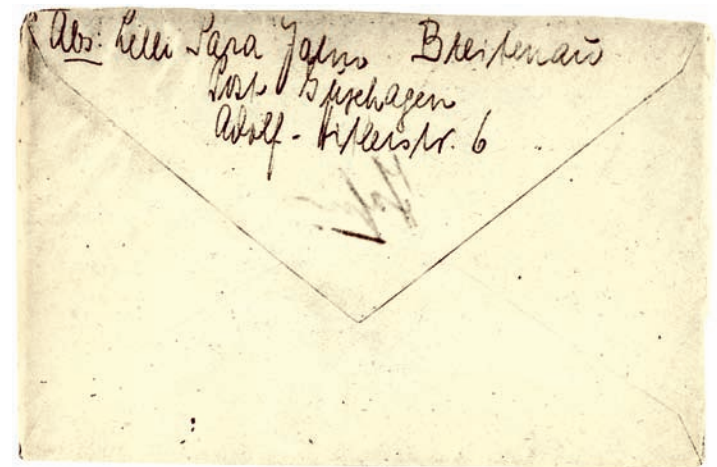 Abs: Lilli Sara Jahn Breitenau
Post Guxhagen
Adolf-Hitlerstr. 6